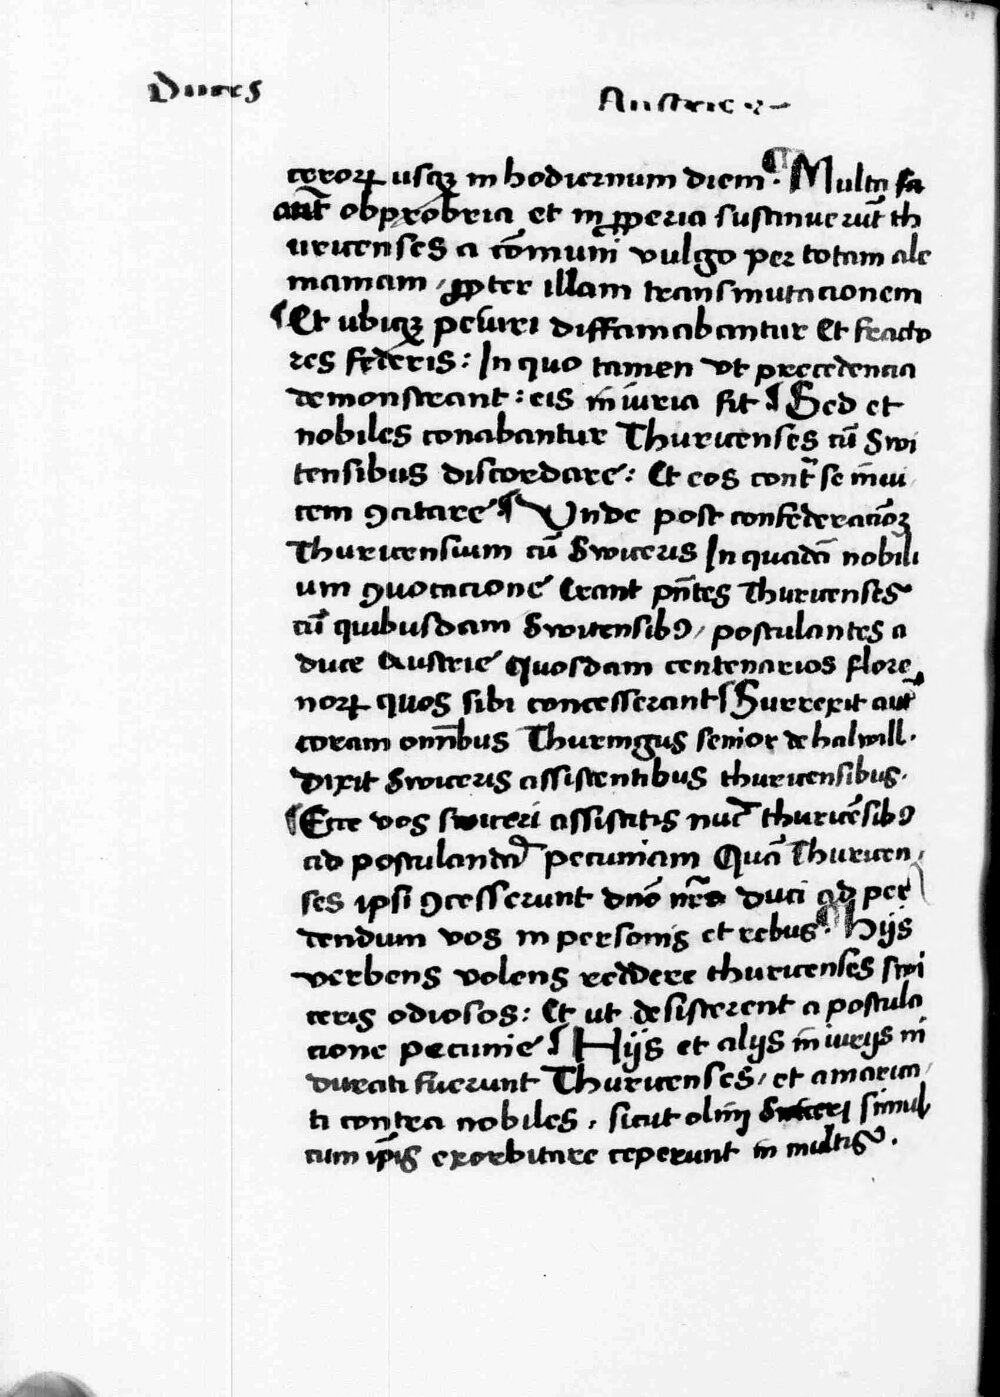 Duces
Austrie
cerorꝝ usqꝫ in hodiernum diem. ¶ Multa
obprobria et inꝓperia sustinuerūt th
uricenses a cōmuni vulgo per totam ale
maniam, ꝓpter illam transmutacionem
¶ Et ubiqꝫ diffamabantur Et fracto
res federis: In quo tamen vt precedencia
demonstrant: eis iniuria fit ¶ Sed et
nobiles conabantur Thuricenses cū Swi
tensibus discordare: Et eos cont̄ se inui
cem ꝯcitare ¶ Vnde post confederacōꝫ
Thuricensium cū Switeris In quadā nobili
um ꝯuocacione Erant pn̄tes Thuricenses
cū quibusdam Switensibꝯ, postulantes a
duce Austrie Quosdam centenarios flore
norꝝ quos sibi concesserant ¶ Surrexit aut̄
coram omībus Thuringus senior de halwill.
dixit Switeris assistentibus thuricensibus.
¶ Ecce vos switeri assistitis nūc thuricēsibꝯ
ad postulandā pecuniam Quā Thuricen,
ses ipsi ꝯcesserunt dnō nr̄o duci ad per
dendum vos in personis et rebus. ¶ Hijs
verbens volens reddere thuricenses swi
teris odiosos: Et ut desisterent a postula
cione pecunie ¶ Hijs et alijs iniurijs in
durati fuerunt Thuricenses, et amarica,
ti contra nobiles, sicut olim Switeri simul
cum ip̄is exorbitare ceperunt in multis.